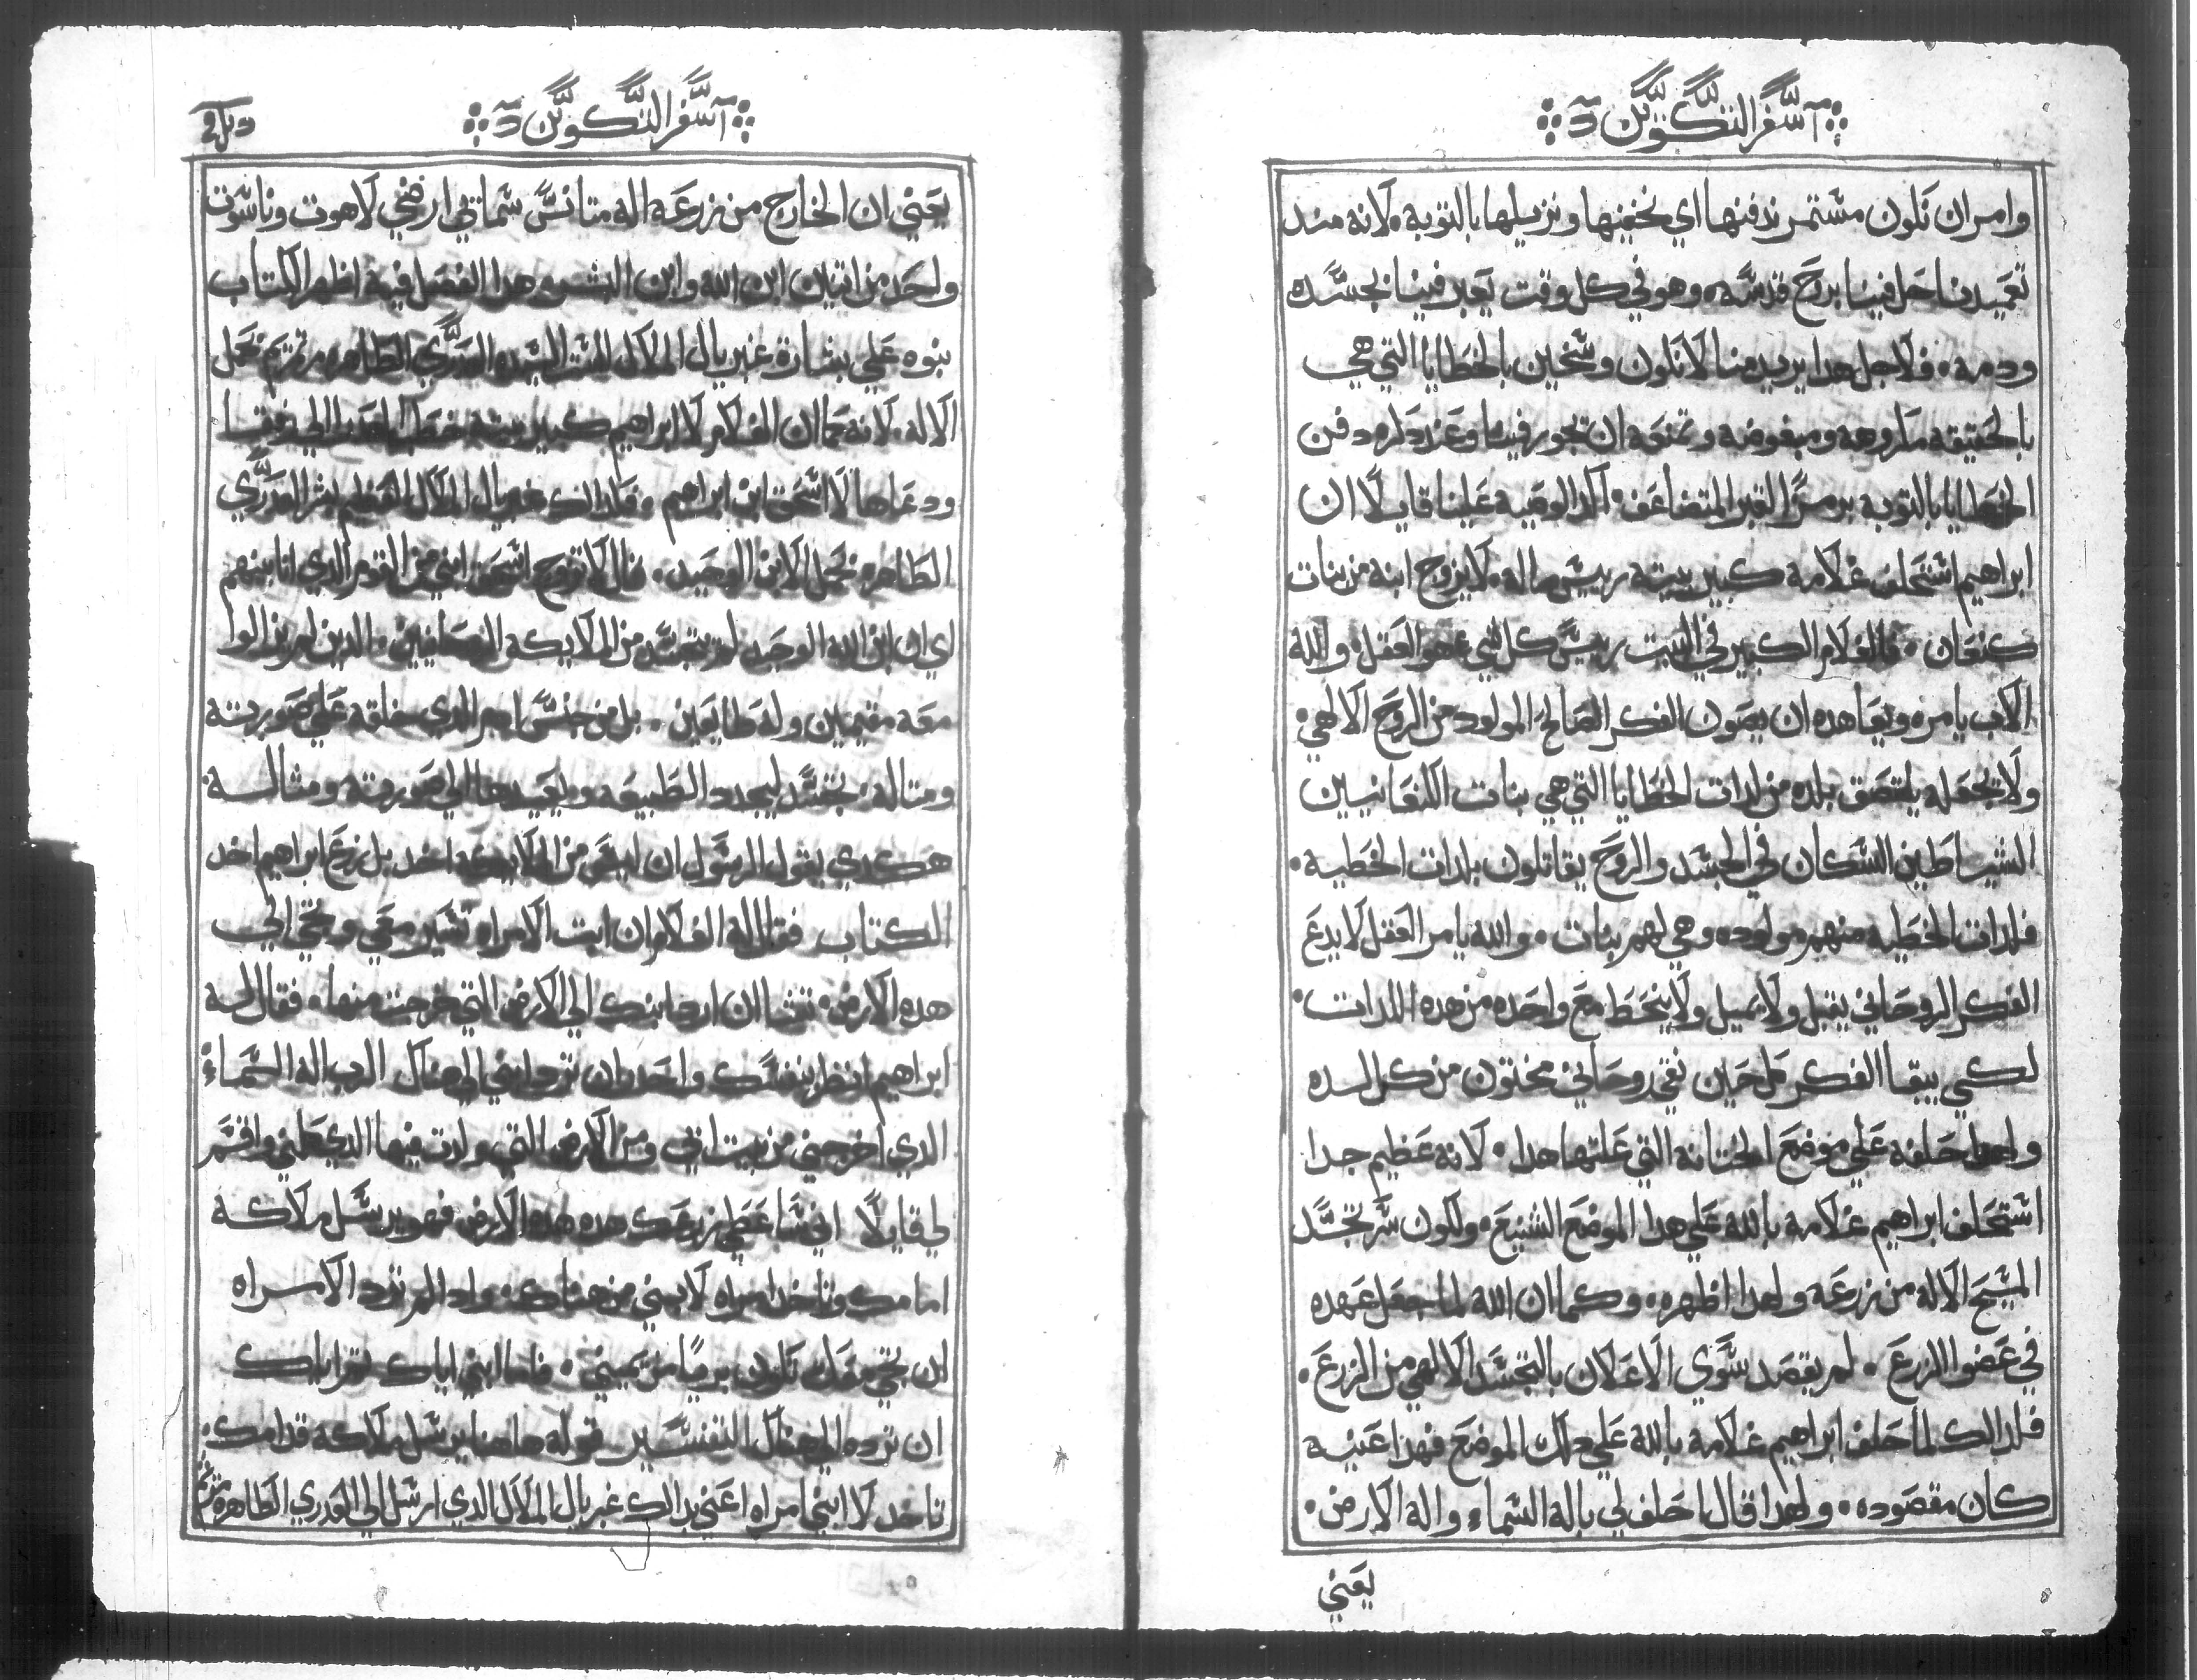 سفر التكوين
وامر ان نكون مستمر ندفنها اي نخفيها ونزيلها بالتوبه لانه مند
تعميدنا حل فينا بروح قدسه وهو في كل وقت يعبر فينا بجسده
ودمه فلاجل هدا يريد منا لا نكون وسخين بالخطايا التي هي
بالحقيقه مكروهه ومبغوضه وتمنعه ان يجوز فينا وعند دكره دفن
الخطايا بالتوبه برمز القبر المتضاعف اكد الوصيه علينا قايلا ان
ابراهيم استحلف غلامه كبير بيته رييس ماله لا يزوج ابنه من بنات
كنعان فالغلام الكبير في البيت رييس كل شي هو العقل والله
الاب يامره ويعاهده ان يصون الفكر الصالح المولود من الروح الالهي
ولا يجعله يلتصق بلده من لدات الخطايا التي هي بنات الكنعانيين
الشياطين السكان في الجسد والروح يقاتلون بلدات الخطيه
فلدات الخطيه منهم مولوده وهي لهم بنات والله يامر العقل لا يدع
الفكر الروحاني يقبل ولا يميل ولا ينحط مع واحده من هده اللدات
لكي يبقا الفكر كل حين نقي روحاني مختون من كل لده
ولهدا حلفه علي موضع الختانه التي علتها هدا لانه عظيم جدا
استحلف ابراهيم غلامه بالله علي هدا الموضع الشنيع ولكون سر تجسد
المسيح الاله من زرعه ولهدا اظهره وكما ان الله لما جعل عهده
في عضو الزرع لم يقصد سوي الاعلان بالتجسد الالهي من الزرع
فلدالك لما حلف ابراهيم غلامه بالله علي دلك الموضع فهدا عينه
كان مقصوده ولهدا قال احلف لي باله السماء واله الارض
يعني
سفر التكوين
يعني ان الخارج من زرعه اله متانس سماتي ارضي لاهوت وناسوت
واحد من اتنين ابن الله وابن البشر هدا الفصل فيه اظهر الكتاب
بنوه علي بشارة غبريال الملاك الست السيده العدري الطاهره مرتمريم بحمل
الاله لانه كما ان الغلام لابراهيم كبير بيته خطب رفقا
ودعاها لاسحق ابن ابراهيم فكدالك غبريال الملاك العظيم بشر العدري
الطاهره بحمل الابن الوحيد قال لا تزوج اسحق ابني من القوم الدي انا بينهم
اي ان ابن الله الوحيد لم يتجسد من الملايكه الدين لم يزالوا
معه مقيمين وله طايعين بل من جنس ادم الدي خلقه علي صورته
ومتاله تجسد ليجدد الطبيعه ويعيدها الي صورته ومثاله
هكدي يقول الرسول ان ليس من الملايكه اخد بل زرع ابراهيم اخد
الكتاب فقال له الغلام ان ابت الامراه تسير معي وتجي الي
هده الارض تشا ان ارد ابنك الي الارض التي خرجت منها فقال له
ابراهيم انظر بنفسك واحد ان ترد ابني الي هناك الرب اله السماء
الدي اخرجني من بيت ابي ومن الارض التي ولدت فيها الدي كلمني واقسم
لي قايلا اني ساعطي زرعك هده الارض فهو يرسل ملاكه
امامك وتاخد امراه لابني من هناك وادا لم ترد الامراه
ان تجي معك تكون بريا من يميني فاما ابني اياك تم اياك
ان ترده الي هناك التفسير قوله هاهنا يرسل ملاكه قدامك
تاخد لابني امراه اعني بدالك غبريال الملاك الدي ارسل الي العدري الطاهره مرتمريم